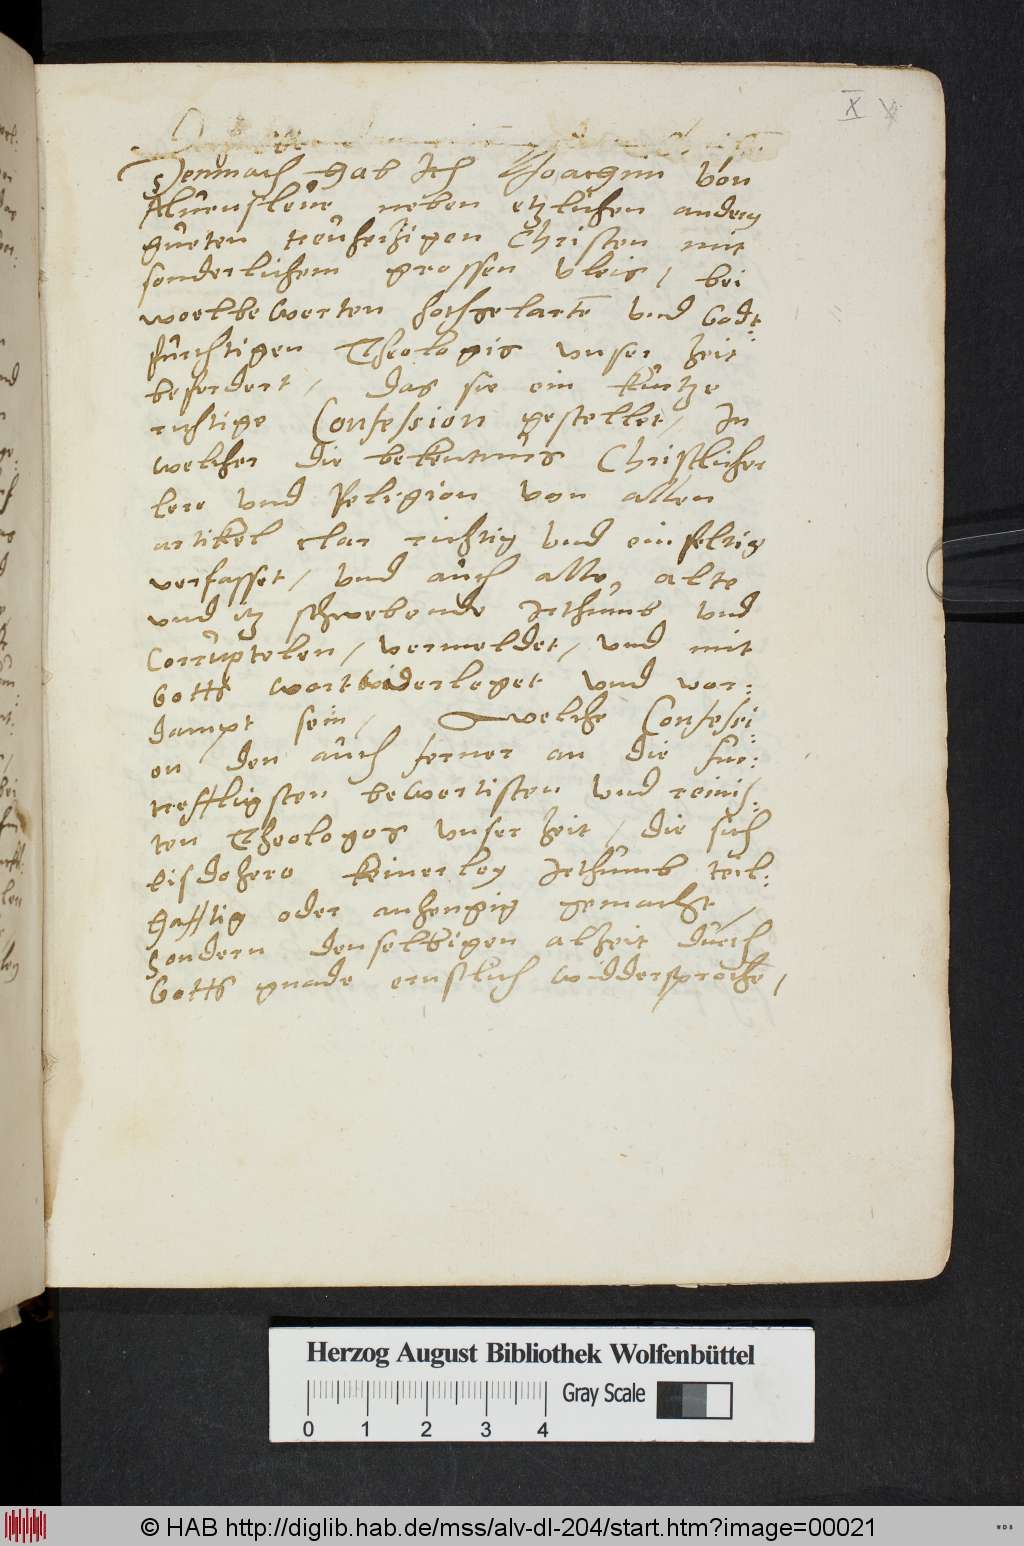 X
Demnach Hab Ich Joachim von
Aluensleue neben etzlichen andern
gueten treuhertzigen Christen mit
sonderlichem grossen vleis, bei
woelbewerten hochgelarte vnd Godt:
fürchtigen Theologis vnser Zeit
befordert, das sie ein kurtze
richtige Confession gestellet, In
welcher die bekentnus Christlicher
lere vnd Religion von allen
artikel clar richtig vnd einfeltig
verfasset, vnd auch alle, alte
vnd itz schwebende Irthumb vnd
Corruptelen, vermeldet, vnd mit
Gotts wort widerleget vnd vor:
dampt sein, welche Confessi:
on den auch ferner an die fur:
trefligsten bewertisten vnd reinis:
ten Theologos vnser Zeit, die sich
bisdohero keinerley Irthumb teil:
hafftig oder anhengig gemacht,
Sondern denselbigen alzeit durch
Gotts gnade ernstlich widdersproche,
Herzog August Bibliothek Wolfenbüttel
0 1 2 3 4
Gray Scale
© HAB http://diglib.hab.de/mss/alv-dl-204/start.htm?image=00021